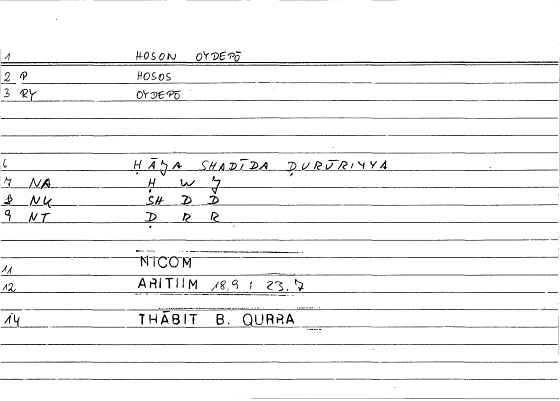 1 HOSON OYDEPŌ
2 P HOSOS
3 RY OYDEPŌ
6 ḤĀJA SHADĪDA ḌURŪRIYYA
7 NA Ḥ W J
8 NK SH D D
9 NT Ḍ R R
11 NICOM
12 ARITIIM 18.9 i 23.7
14 THĀBIT B. QURRA